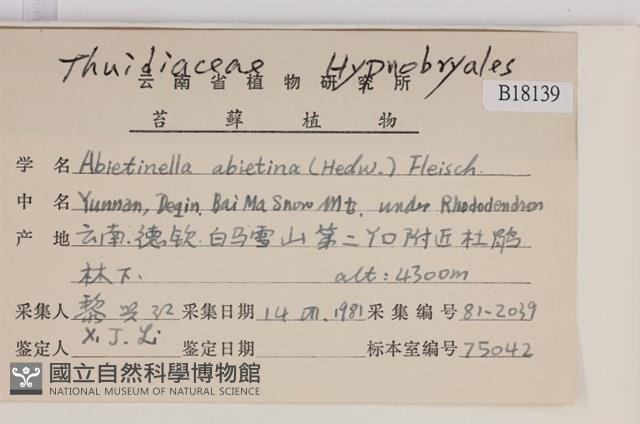 Thuidiaceae Hypnobryales
云南省植物研究所
B18139
苔藓植物
学名 Abietinella abietina (Hedw.) Fleisch.
中名 Yunnan, Deqin, Bai Ma Snow Mt. under Rhododendron
产地 云南.德钦.白马雪山第二丫口附近杜鹃
林下. alt: 4300m
采集人 黎兴江 采集日期 14 1981 采集编号 81-2039
X. J. Li
鉴定人 鉴定日期 标本室编号 75042
國立自然科學博物館
NATIONAL MUSEUM OF NATURAL SCIENCE